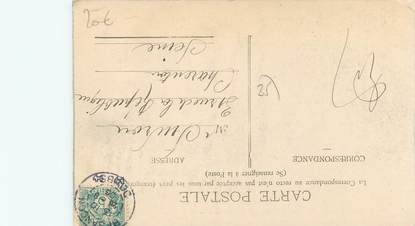 CARTE POSTALE
La Correspondance au recto n'est pas acceptée par tous les pays étrangers
(Se renseigner à la Poste)
CORRESPONDANCE
ADRESSE
Mr
3 rue de la République
Charenton
Seine
25
20€